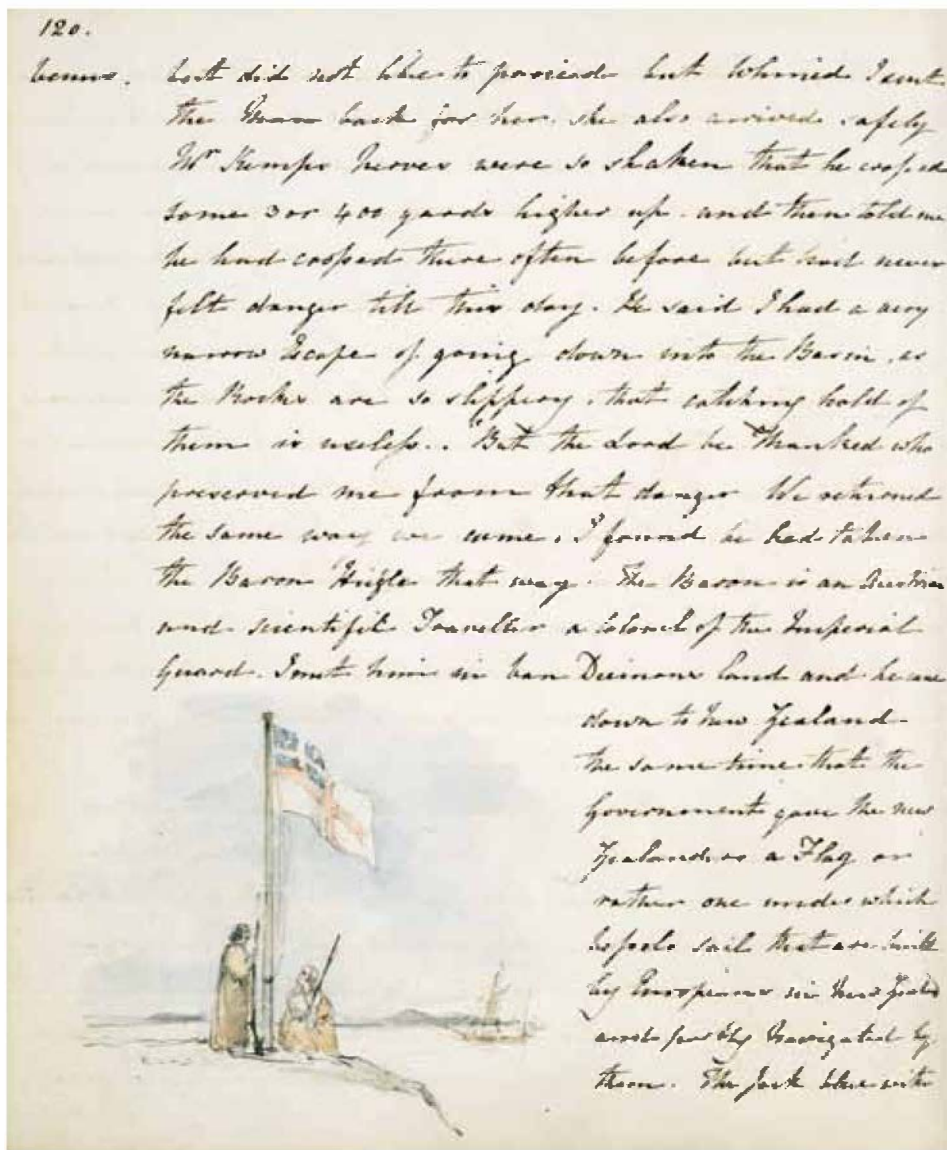 120.
but did not like to proceed but whined I sent
the Man back for her. she also arrived safely
Mr Kemps Nerves were so shaken that he crossed
some 3 or 400 yards higher up. and then told me
he had crossed there often before but had never
felt danger till this day. He said I had a very
narrow Escape of going down into the Basin, as
the Rocks are so slippery, that catching hold of
them is useless.. "But the Lord be Thanked who
preserved me from that danger We returned
the same way we came. I found he had taken
the Baron Hügle that way. The Baron is an Austrian
and scientific Traveller a Colonel of the Imperial
Guard. I met him in Van Diemans Land and he came
down to New Zealand
the same time that the
Government gave the New
Zealanders a Flag or
rather one under which
Vessels sail that are built
by Europeans in New Zeald
and partly Navigated by
them. The Jack blue with